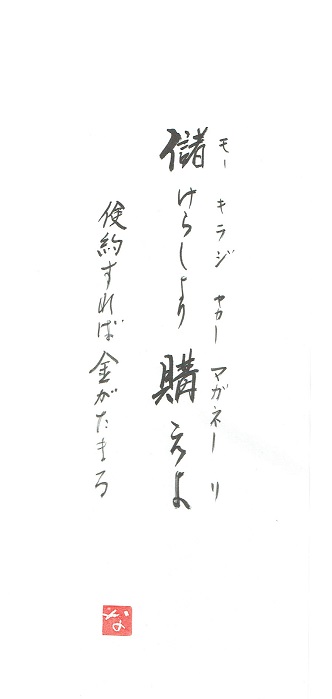 モー キラジ ヤカー マガネー リ
儲けらしより 購えよ
倹約すれば金がたまる
な